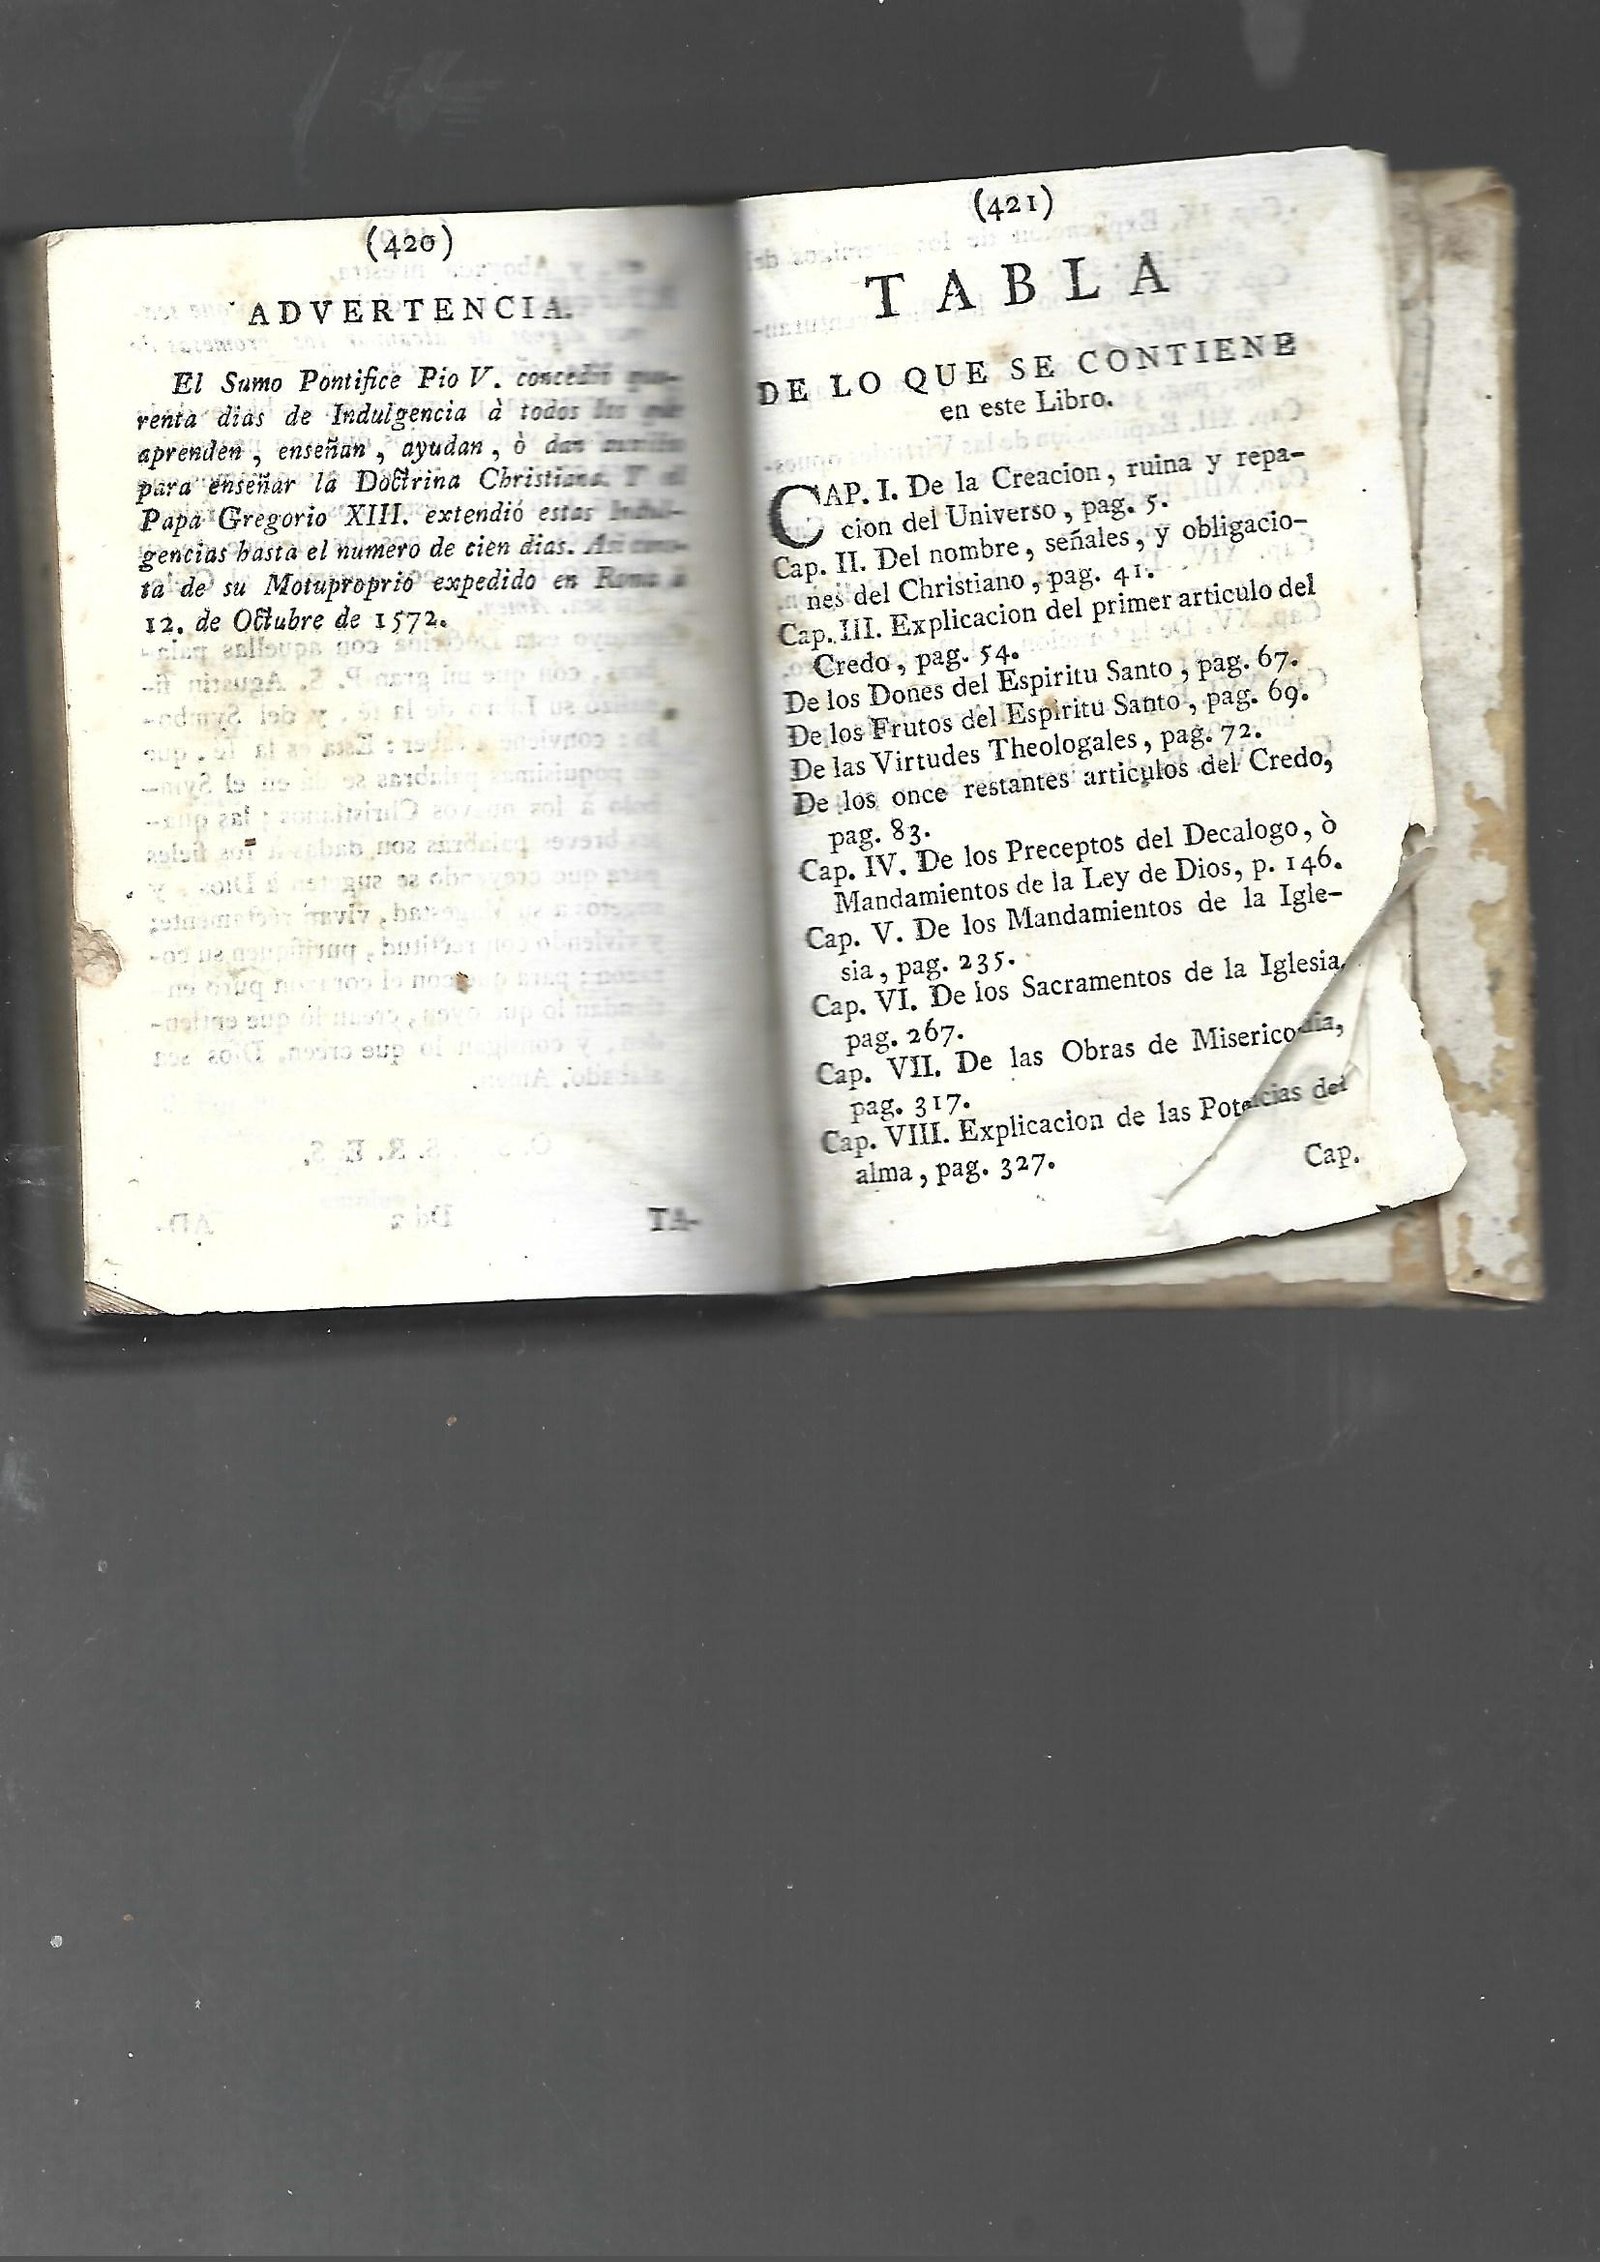 (420)
ADVERTENCIA.
El Sumo Pontifice Pio V. concedió qua-
renta dias de Indulgencia à todos los que
aprenden, enseñan, ayudan, ò dan auxilio
para enseñar la Doctrina Christiana. Y el
Papa Gregorio XIII. extendió estas Indul-
gencias hasta el numero de cien dias. Asi cons-
ta de su Motuproprio expedido en Roma à
12. de Octubre de 1572.
TA-
(421)
TABLA
DE LO QUE SE CONTIENE
en este Libro.
CAP. I. De la Creacion, ruina y repa-
cion del Universo, pag. 5.
Cap. II. Del nombre, señales, y obligacio-
nes del Christiano, pag. 41.
Cap. III. Explicacion del primer articulo del
Credo, pag. 54.
De los Dones del Espiritu Santo, pag. 67.
De los Frutos del Espiritu Santo, pag. 69.
De las Virtudes Theologales, pag. 72.
De los once restantes articulos del Credo,
pag. 83.
Cap. IV. De los Preceptos del Decalogo, ò
Mandamientos de la Ley de Dios, p. 146.
Cap. V. De los Mandamientos de la Igle-
sia, pag. 235.
Cap. VI. De los Sacramentos de la Iglesia,
pag. 267.
Cap. VII. De las Obras de Misericodia,
pag. 317.
Cap. VIII. Explicacion de las Potencias del
alma, pag. 327.
Cap.